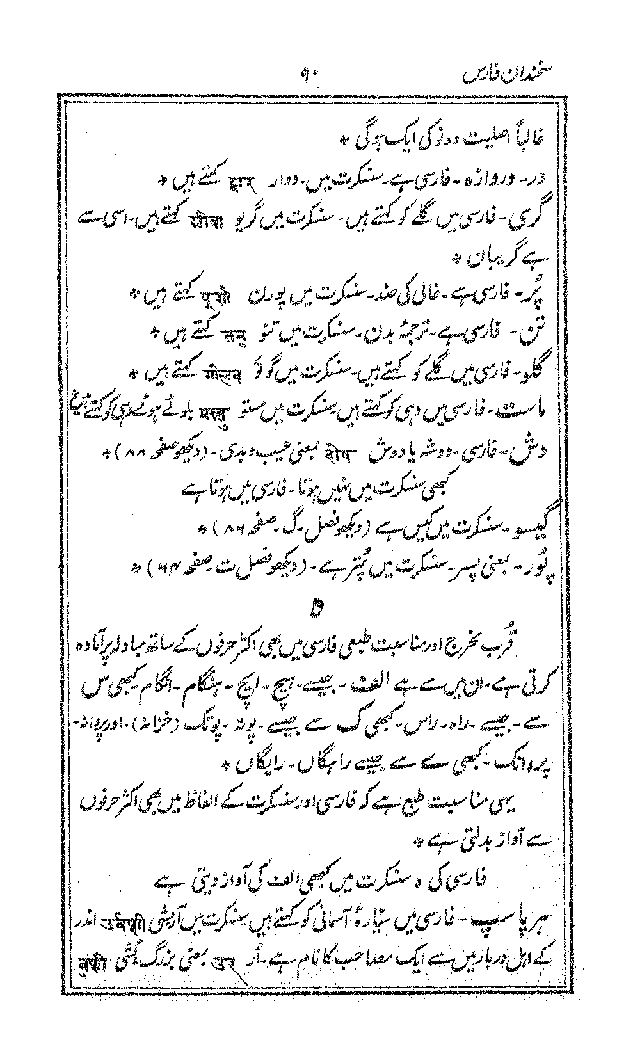 سخندان فارس ۹۰
غالباً اصلیت دونو کی ایک ہوگی *
در۔ دروازہ۔ فارسی ہے۔ سنسکرت میں۔ دوار द्वार کہتے ہیں *
گری۔ فارسی میں گلے کو کہتے ہیں۔ سنسکرت میں گریو ग्रीवा کہتے ہیں۔ اسی سے
ہے گریبان *
پُر۔ فارسی ہے۔ خالی کی ضد۔ سنسکرت میں پورن पूर्ण کہتے ہیں *
تن۔ فارسی ہے۔ ترجمۂ بدن۔ سنسکرت میں تنو तनु کہتے ہیں *
گلو۔ فارسی میں گلے کو کہتے ہیں۔ سنسکرت میں گولَو کہتے ہیں *
ماست۔ فارسی میں دہی کو کہتے ہیں سنسکرت میں مستو मस्तु بلوئے ہوئے دہی کو کہتے ہیں
دش۔ فارسی۔ دوشہ یا دوش दोष بمعنی عیب و بدی۔ (دیکھو صفحہ ۸۸) *
کبھی سنسکرت میں نہیں ہوتا۔ فارسی میں ہوتا ہے
گیسو۔ سنسکرت میں کیس ہے (دیکھو فصل۔ گ۔ صفحہ ۸۶) *
پُور۔ بمعنی پسر۔ سنسکرت میں پُتر ہے۔ (دیکھو فصل ت۔ صفحہ ۶۴) *
ہ
قُرب مخرج اور مناسبت طبعی فارسی میں بھی اکثر حرفوں کے ساتھ مبادلہ پر آمادہ
کرتی ہے۔ ان میں سے ہے الف۔ جیسے۔ ہیچ۔ ایچ۔ ہنگام۔ انگام کبھی س
سے۔ جیسے۔ راہ۔ راس۔ کبھی ک سے جیسے۔ پوتہ۔ پوتک (خزانہ)۔ اور پروانہ۔
پروانک۔ کبھی ے سے جیسے راہگاں۔ رایگاں *
یہی مناسبت طبع ہے کہ فارسی اور سنسکرت کے الفاظ میں بھی اکثر حرفوں
سے آواز بدلتی ہے *
فارسی کی ہ سنسکرت میں کبھی الف کی آواز دیتی ہے
ہرپاسپ۔ فارسی میں سیّارۂ آسمانی کو کہتے ہیں سنسکرت میں اُربشی उर्वशी اندر
کے اہل دربار میں سے ایک مصاحب کا نام ہے۔ اُر उर بمعنی بزرگ